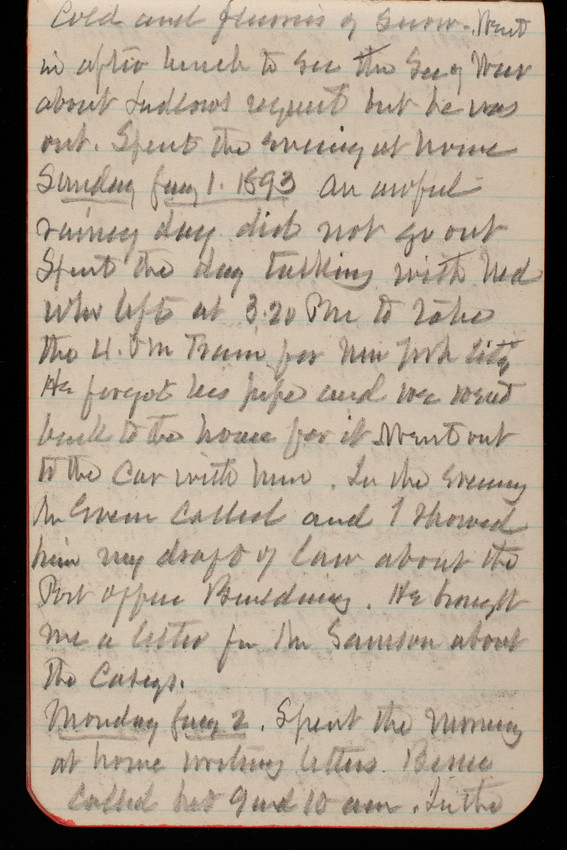 Cold and flurries of snow. Went
in after lunch to see the Sec of War
about Ludlows request but he was
out. Spent the evening at home
Sunday Jany 1. 1893 an awful
rainy day did not go out
Spent the day talking with Ned
who left at 3.20 PM to take
the 4. PM Train for New York City
He forgot his pipe and we went
back to the house for it Went out
to the Car with him. In the evening
Mr Green called and I showed
him my draft of law about the
Post Office Building. He brought
me a letter fr Mr Samson about
the Caseys.
Monday Jany 2. Spent the morning
at home writing letters.
called bet 9 and 10 am. In the